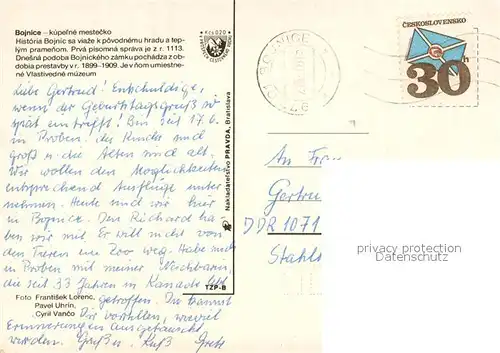 Bojnice – kúpeľné mestečko
História Bojníc sa viaže k pôvodnému hradu a tep-
lým prameňom. Prvá písomná správa je z r. 1113.
Dnešná podoba Bojnického zámku pochádza z ob-
dobia prestavby v r. 1899-1909. Je v ňom umiestne-
né Vlastivedné múzeum
Kčs 0,20
Liebe Gertrud! Entschuldige,
wenn der Geburtstagsgruß so
spät eintrifft! Bin seit 17.6.
in Proben. die Kinder sind
groß u. die Alten sind alt.
Wir wollen den Möglichkeiten
entsprechend Ausflüge unter
nehmen. Heute sind wir hier
in Bojnice. Den Richard ha-
ben wir mit. Er will nicht von
den Tieren im Zoo weg. Habe mich
in Proben mit meiner Nachbarin,
die seit 33 Jahren in Kanada lebt
getroffen. Du kannst
Dir vorstellen, wieviel
Erinnerungen ausgetauscht
werden. Gruß u. Kuß Grete
Foto František Lorenc,
Pavel Uhrin,
Cyril Vančo
TZP-B
Nakladateľstvo PRAVDA, Bratislava
BOJNICE
ČESKOSLOVENSKO
30h
An Frau
Gertru
DDR 1071
Stahlh
privacy protection
www.oldthing.de